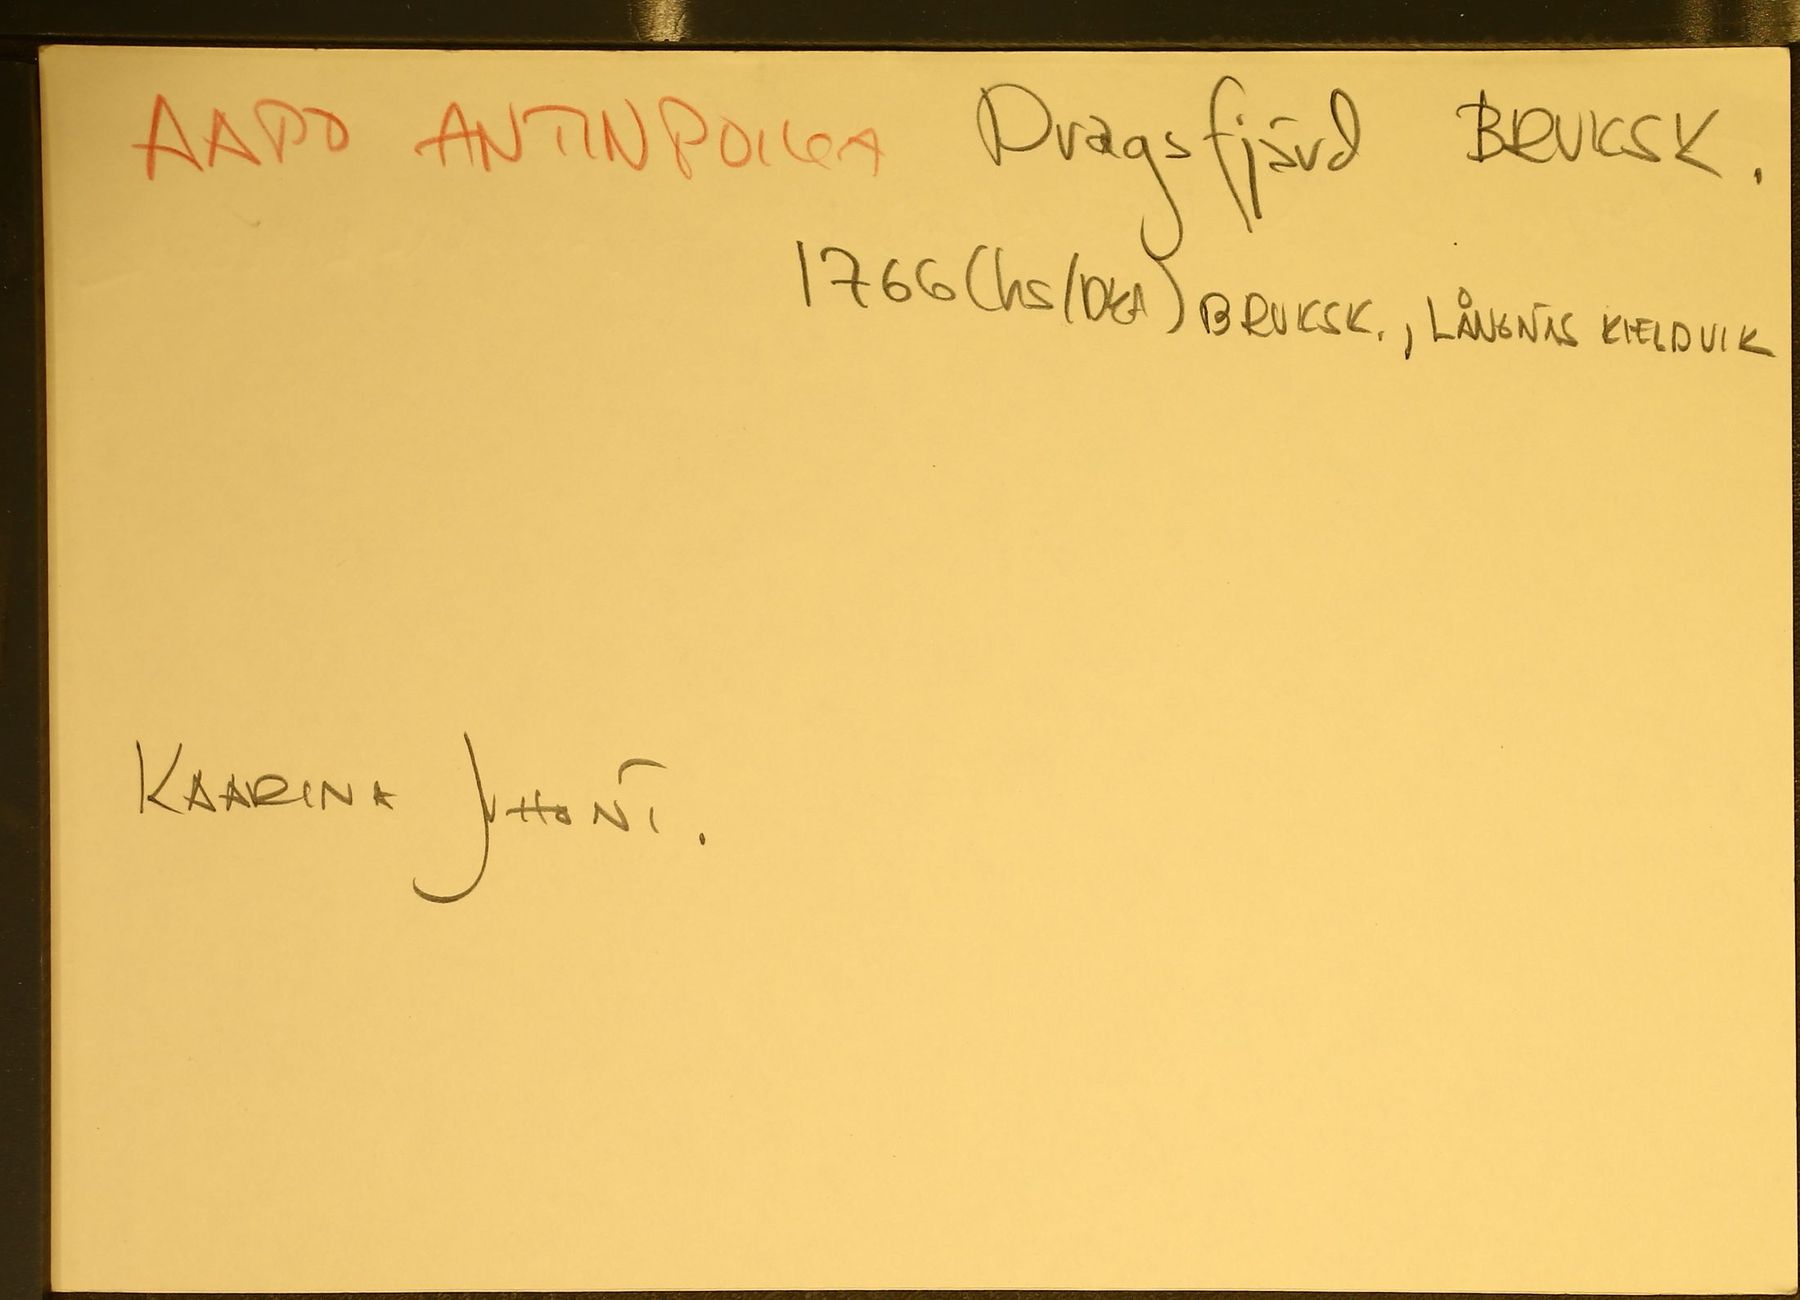 AAPO ANTINPOIKA Dragsfjärd BRUKSK.
1766 (hs/DKA) BRUKSK., LÅNGNÄS KIELDVIK
KAARINA JUHONT.